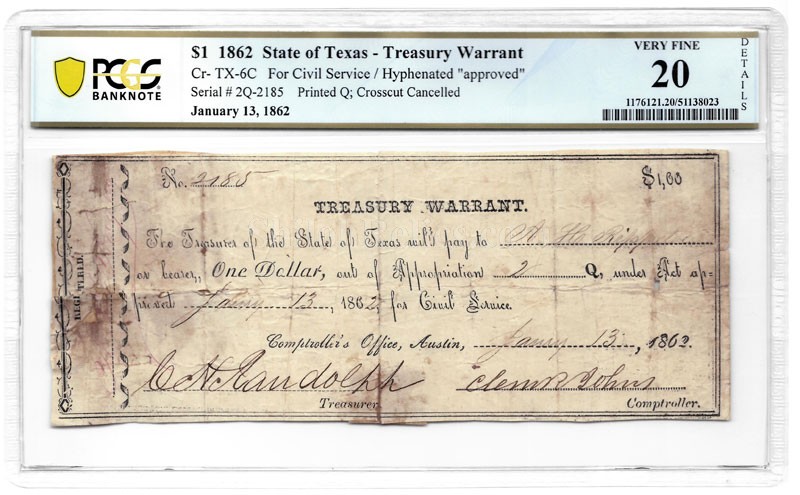 PCGS
BANKNOTE
$1 1862 State of Texas - Treasury Warrant
Cr- TX-6C For Civil Service / Hyphenated "approved"
Serial # 2Q-2185 Printed Q; Crosscut Cancelled
January 13, 1862
VERY FINE
20
1176121.20/51138023
DETAILS
No. 2185
$1,00
TREASURY WARRANT.
The Treasurer of the State of Texas will pay to A. H.
or bearer, One Dollar, out of Appropriation 2 Q, under Act ap-
proved Jany 13, 1862, for Civil Service.
Comptroller's Office, Austin, Jany 13, 1862.
C H Randolph
Treasurer.
Clem R Johns
Comptroller.
REGISTERED.